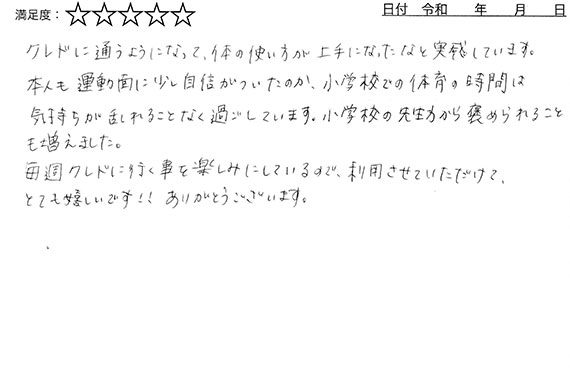 満足度：☆☆☆☆☆ 日付 令和 年 月 日
クレドに通うようになって、体の使い方が上手になったなと実感しています。
本人も運動面に少し自信がついたのか、小学校での体育の時間は
気持ちが乱れることなく過ごしています。小学校の先生方から褒められること
も増えました。
毎週クレドに行く事を楽しみにしているので、利用させていただけて、
とても嬉しいです!! ありがとうございます。